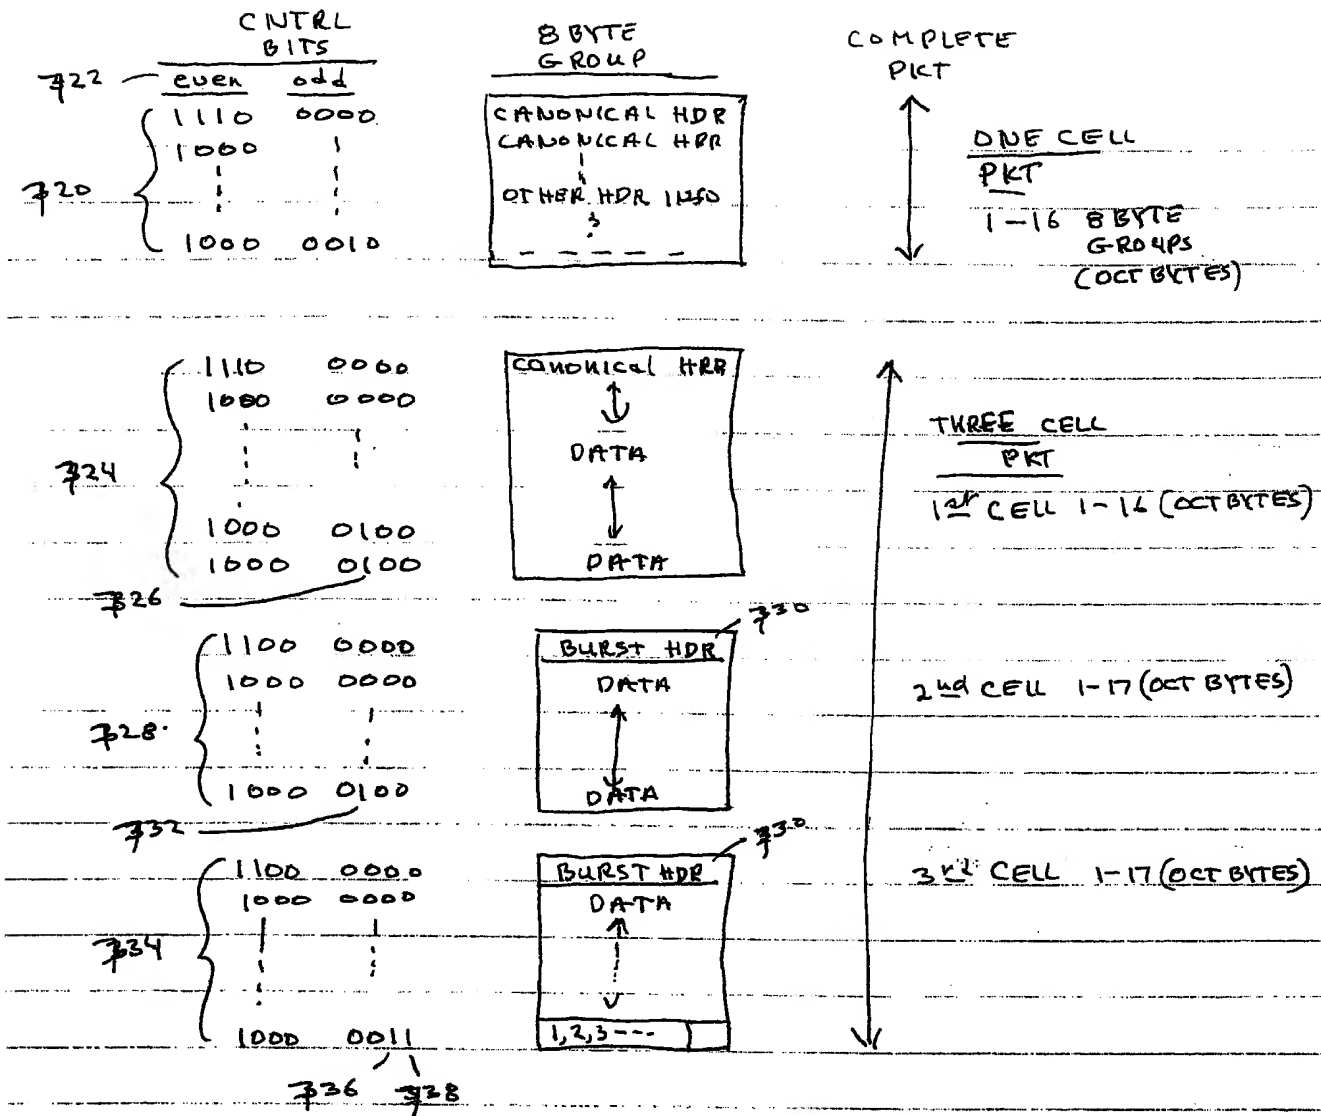 CNTRL
BITS
8 BYTE
GROUP
COMPLETE
PKT
722
even odd
1110 0000
1000
1000 0010
720
CANONICAL HDR
CANONICAL HDR
OTHER HDR INFO
ONE CELL
PKT
1-16 8 BYTE
GROUPS
(OCT BYTES)
1110 0000
1000 0000
724
1000 0100
1000 0100
726
CANONICAL HDR
DATA
DATA
THREE CELL
PKT
1st CELL 1-16 (OCT BYTES)
730
1100 0000
1000 0000
728
1000 0100
732
BURST HDR
DATA
DATA
2nd CELL 1-17 (OCT BYTES)
730
1100 0000
1000 0000
734
1000 0011
736 738
BURST HDR
DATA
1,2,3---
3rd CELL 1-17 (OCT BYTES)